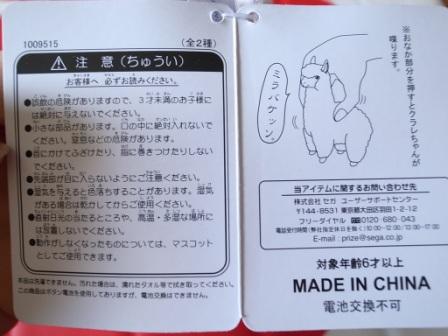 1009515
(全2種)
注意(ちゅうい)
お客様へ 必ずお読みください。
●誤飲の危険がありますので、3才未満のお子様には
絶対に与えないでください。
●小さな部品があります。口の中に絶対入れないで
ください。窒息などの危険があります。
●首にかけてふざけたり、指に巻きつけたりしない
でください。
●先端部が目に入らないようにご注意ください。
●湿気を与えると色落ちすることがあります。湿気
がある場合は乾かしてからご使用ください。
●直射日光の当たるところや、高温・多湿な場所に
は放置しないでください。
●動作がしなくなったものについては、マスコット
としてご使用できます。
本品は洗濯できません。汚れた場合は、濡れたタオル等で拭き取ってください。
この商品はボタン電池を使用しておりますが、電池交換はできません。
※おなか部分を押すとクラレちゃんが
喋ります。
ミラバケッソ。
当アイテムに関するお問い合わせ先
株式会社 セガ ユーザーサポートセンター
〒144-8531 東京都大田区羽田1-2-12
フリーダイヤル 0120 680 043
E-mail : prize@sega.co.jp
対象年齢6才以上
MADE IN CHINA
電池交換不可